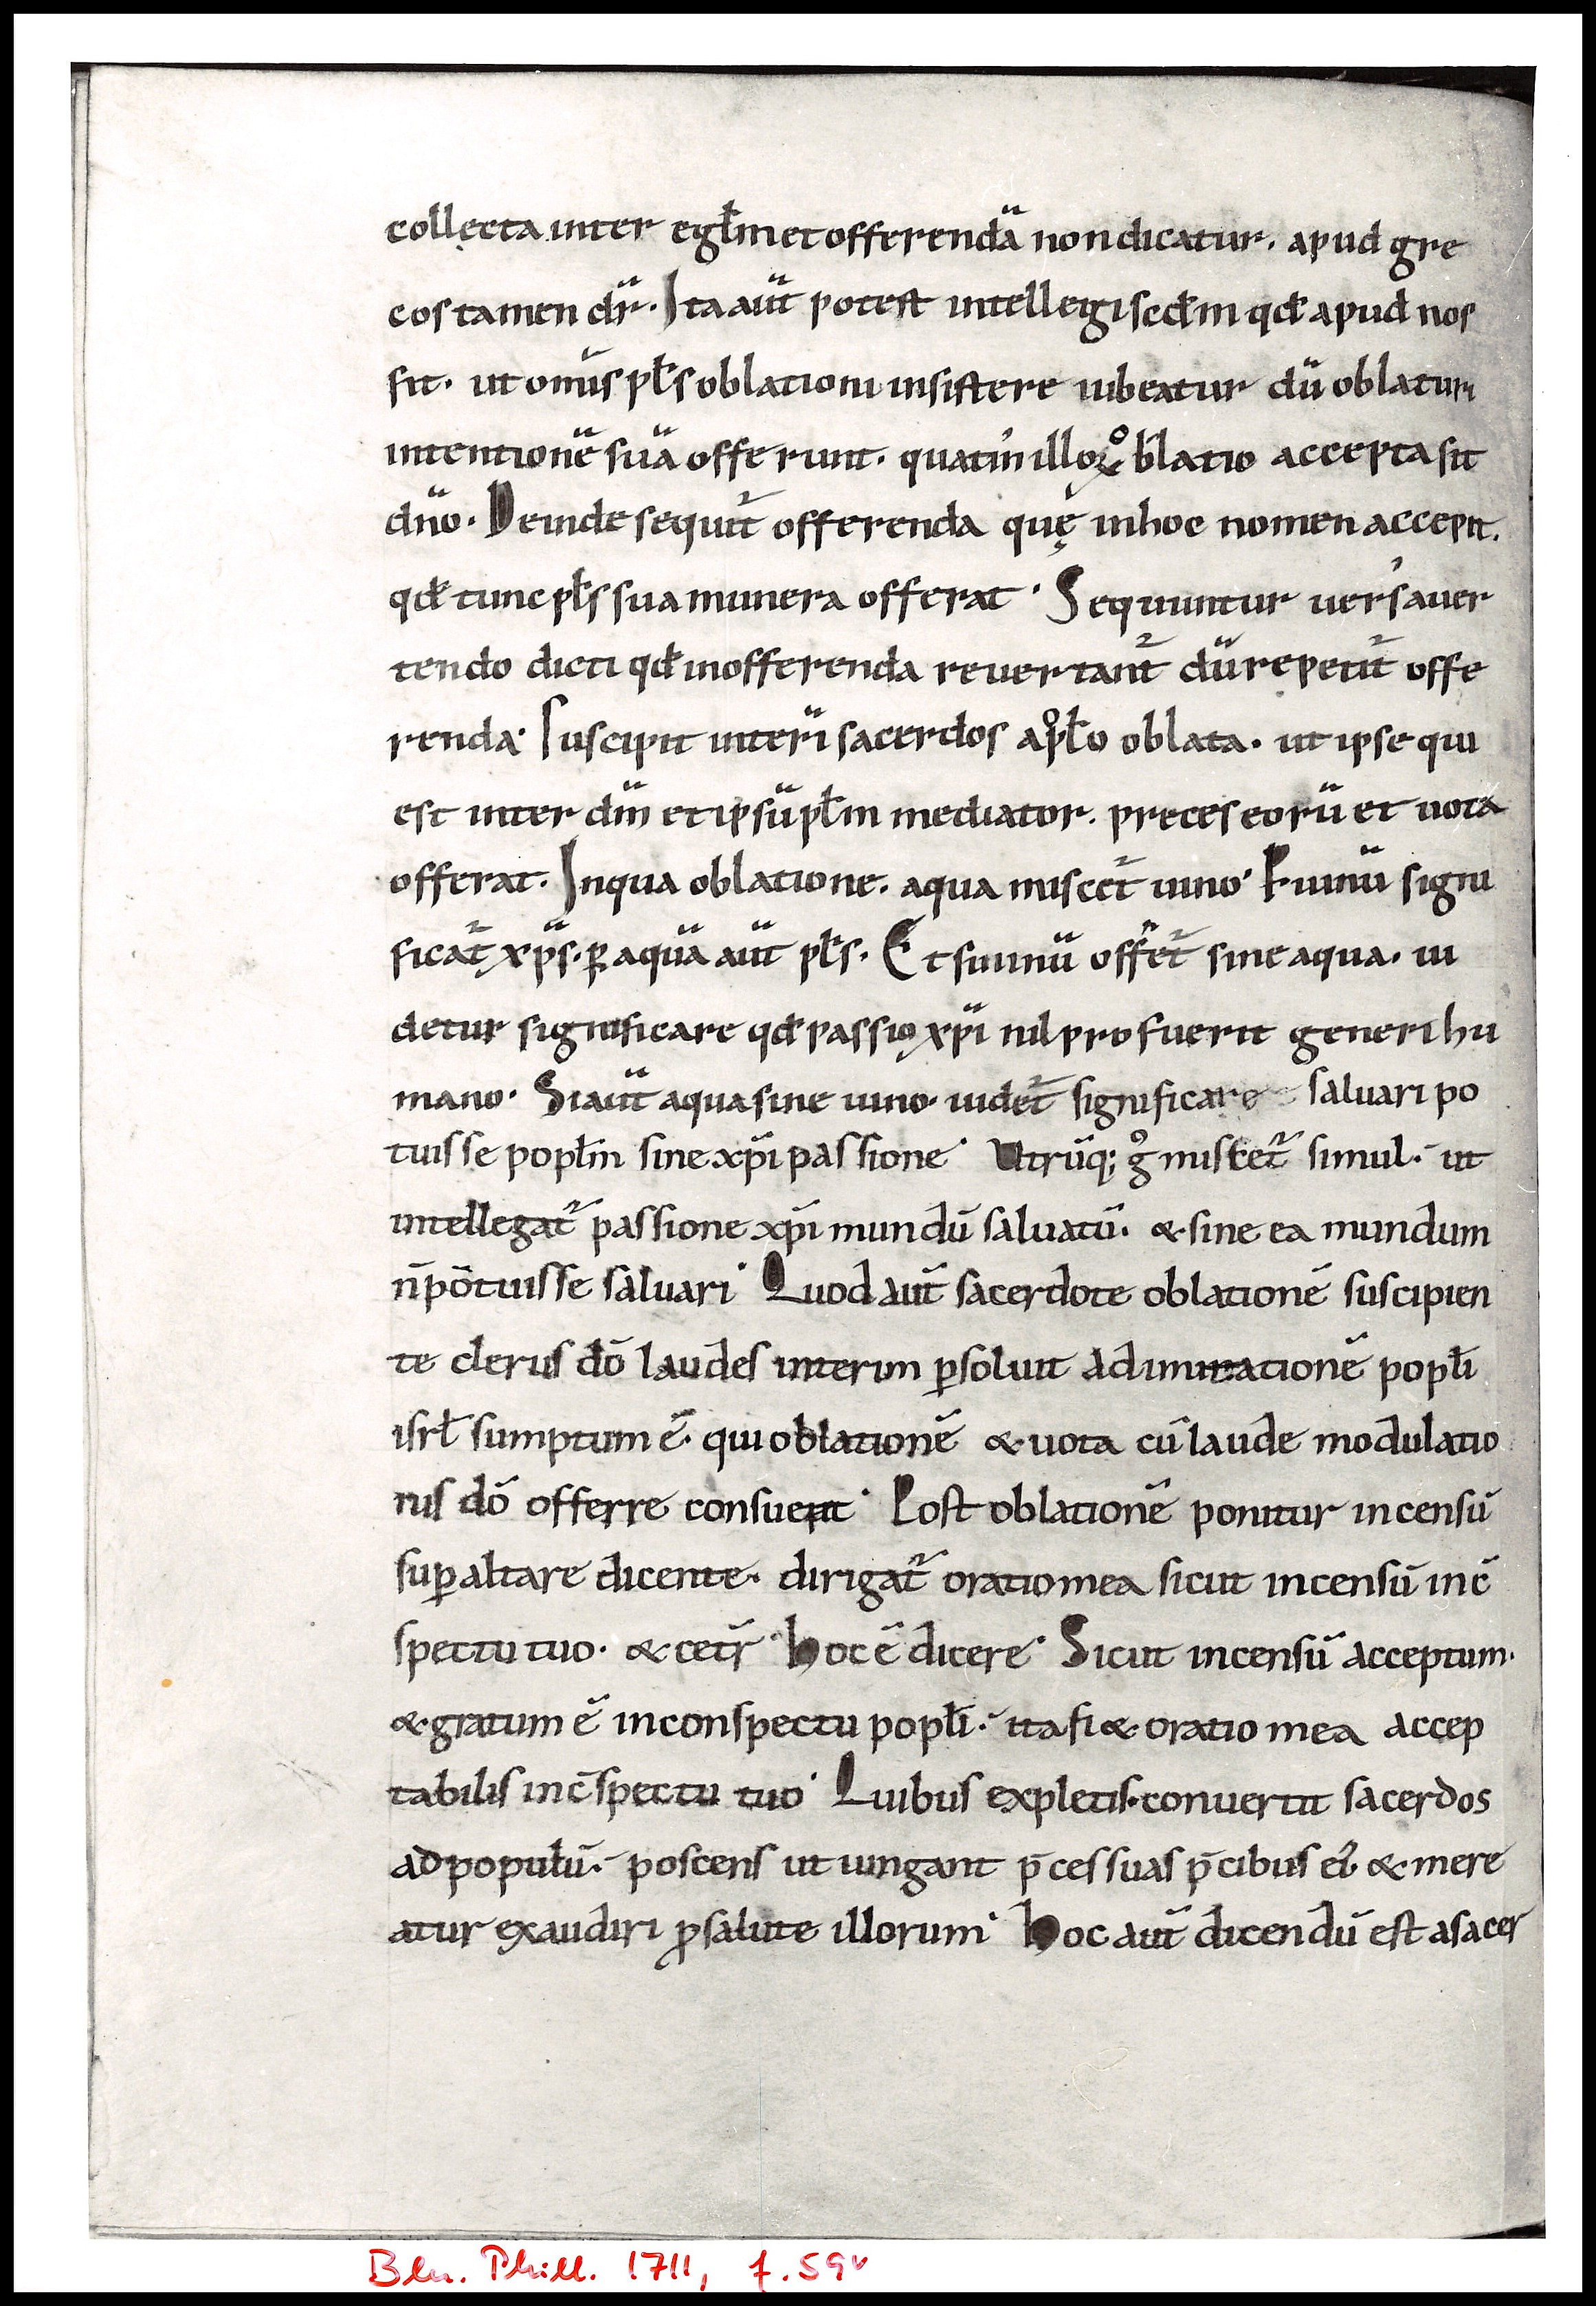 collęcta inter eǵłm et offerendā non dicatur. apud gre
cos tamen dr̄. Ita aūt potest intellegi scđm qđ apud nos
fit. ut omīs pƚs oblationi insistere iubeatur dū oblaturi
intentionē suā offerunt. quatin' illoꝝ oblatio accepta sit
dn̄o. Deinde sequit᷑ offerenda quę inhoc nomen accepit.
qđ tunc pƚs sua munera offerat. Sequuntur uers' auer
tendo dicti qđ inofferenda reuertant᷑ dū repetit᷑ offe
renda. Suscipit interī sacerdos a pƚo oblata. ut ipse qui
est inter dm̄ et ipsū pƚm mediator. preces eorū et uota
offerat. Inqua oblatione. aqua miscet᷑ uino. P uinū signi
ficat᷑ xp̄s. ꝑ aquā aūt pƚs. Et si uinū offet᷑ sine aqua. ui
detur significare qđ passio xp̄i nil profuerit generi hu
mano. Si aūt aqua sine uino. uidet᷑ significare saluari po
tuisse popƚm sine xp̄i passione. Utrūq; gͦ miscet᷑ simul. ut
intellegat᷑ passione xp̄i mundū saluatū. & sine ea mundum
n̄ potuisse saluari. Quod aūt sacerdote oblationē suscipien
te clerus dō laudes interim ꝑsoluit ad imitationē popƚi
isrƚ sumptum ē. qui oblationē & uota cū laude modulatio
nis dō offerre consueuit. Post oblationē ponitur incensū
suꝑ altare dicente. dirigat᷑ oratio mea sicut incensū inc̄
spectu tuo. & cet᷑. Hoc ē dicere. Sicut incensū acceptum.
& gratum ē inconspectu popƚi. ita fi& oratio mea accep
tabilis inc̄spectu tuo. Quibus expletis. conuertit sacerdos
ad populū. poscens ut iungant p̄ces suas p̄cibus ei' & mere
atur exaudiri ꝓ salute illorum. Hoc aūt dicendū est a sacer
Bln. Phill. 1711, f. 59v